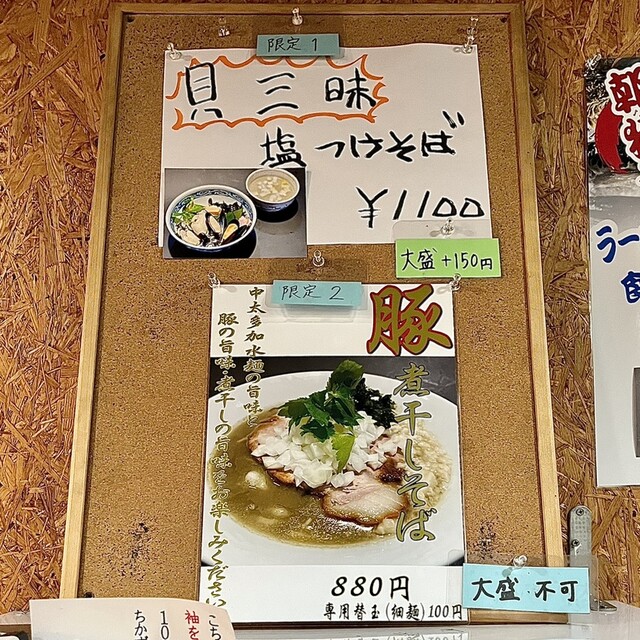 限定1
貝三昧
塩つけそば
¥1100
大盛+150円
限定2
豚
煮干しそば
中太多加水麺の旨味と
豚の旨味・煮干しの旨味をお楽しみください
880円
専用替玉(細麺)100円
大盛 不可
朝
ラー
こち
袖を
10
ちかず